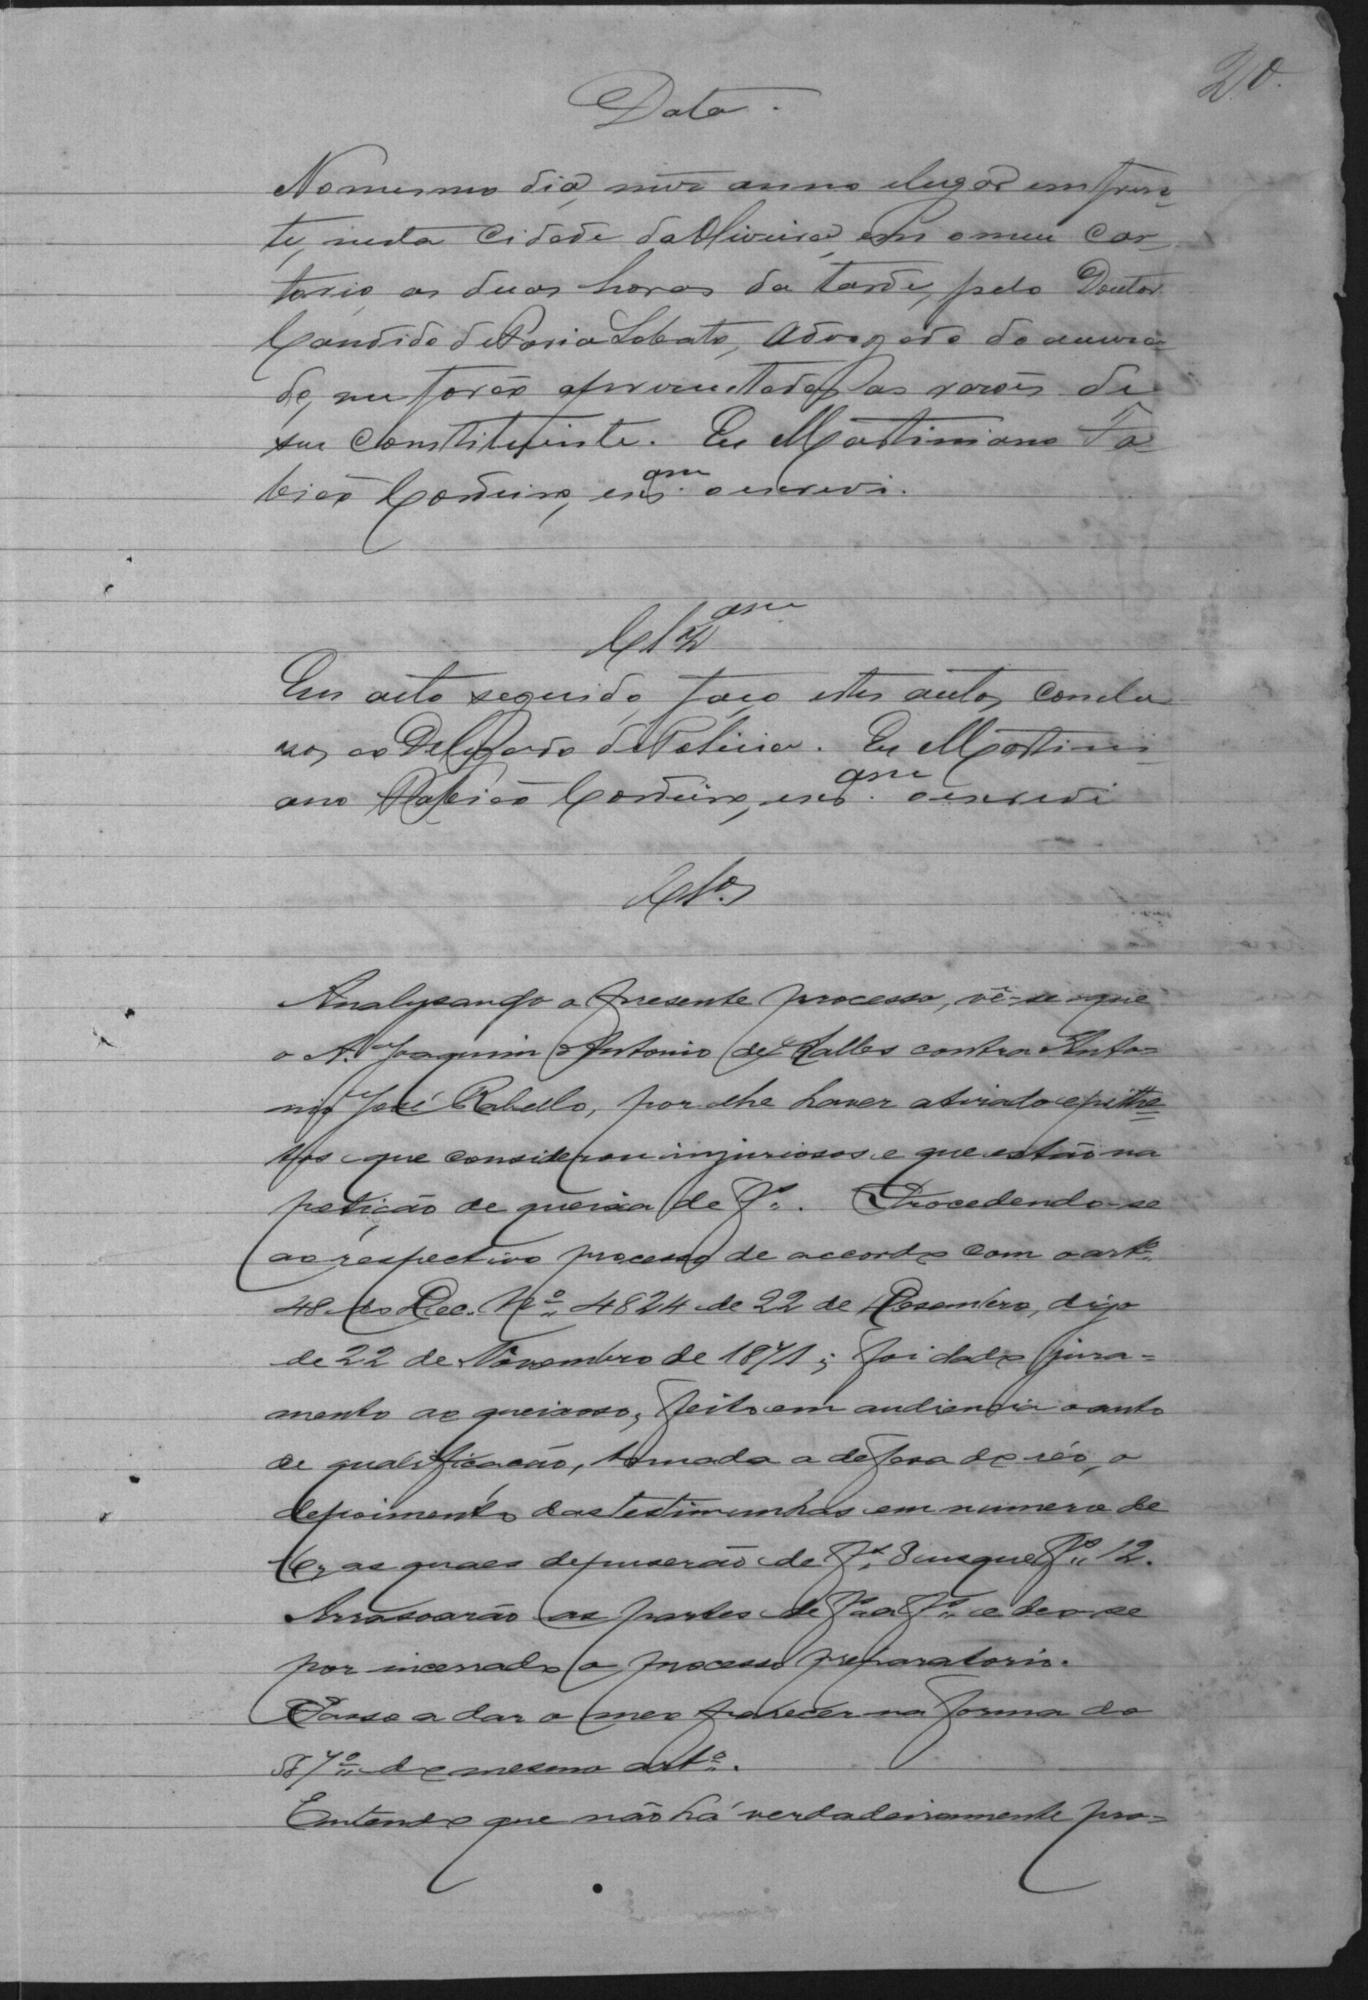 20.
Data.
No mesmo dia, mez anno e lugar em fren
te, nesta Cidade da Oliveira, em o meu Car
torio, as duas horas da tarde, pelo Doutor
Candido de Faria Lobato, Advogado do accusa
do, me forão aprezentadas as rasoes de
seu Constituinte. Eu Martiniano Fa
bião Cordeiro, escr.am o escrevi.
Clz.am
Em acto seguido faço estes autos conclu
zos ao Delegado de Policia. Eu Martini
ano Fabião Cordeiro, escr.am o escrevi
Clos.
Analysando o presente processo, vê-se que
o A. Joaquim Antonio de Salles contra Anto=
nio José Rabello, por lhe haver atirado epithe=
tos que considerou injuriosos e que estão na
petição de queixa de f.s. Procedendo-se
ao respectivo processo de accordo com o art.o
48 do Dec. Nº 4824 de 22 de Desembro, digo
de 22 de Novembro de 1871; foi dado jura=
mento ao queixoso, feito em audiencia o auto
de qualificação, tomada a defesa do réo, o
depoimento das testimunhas em numero de
6, as quaes depuserão de f.s 8 usque f.s 12.
Arrasoarão as partes de f.s a f.s e deo-se
por incerrado o processo preparatorio.
Passo a dar o meo parecer na forma do
§ 7º do mesmo art.o.
Entendo que não há verdadeiramente pro=